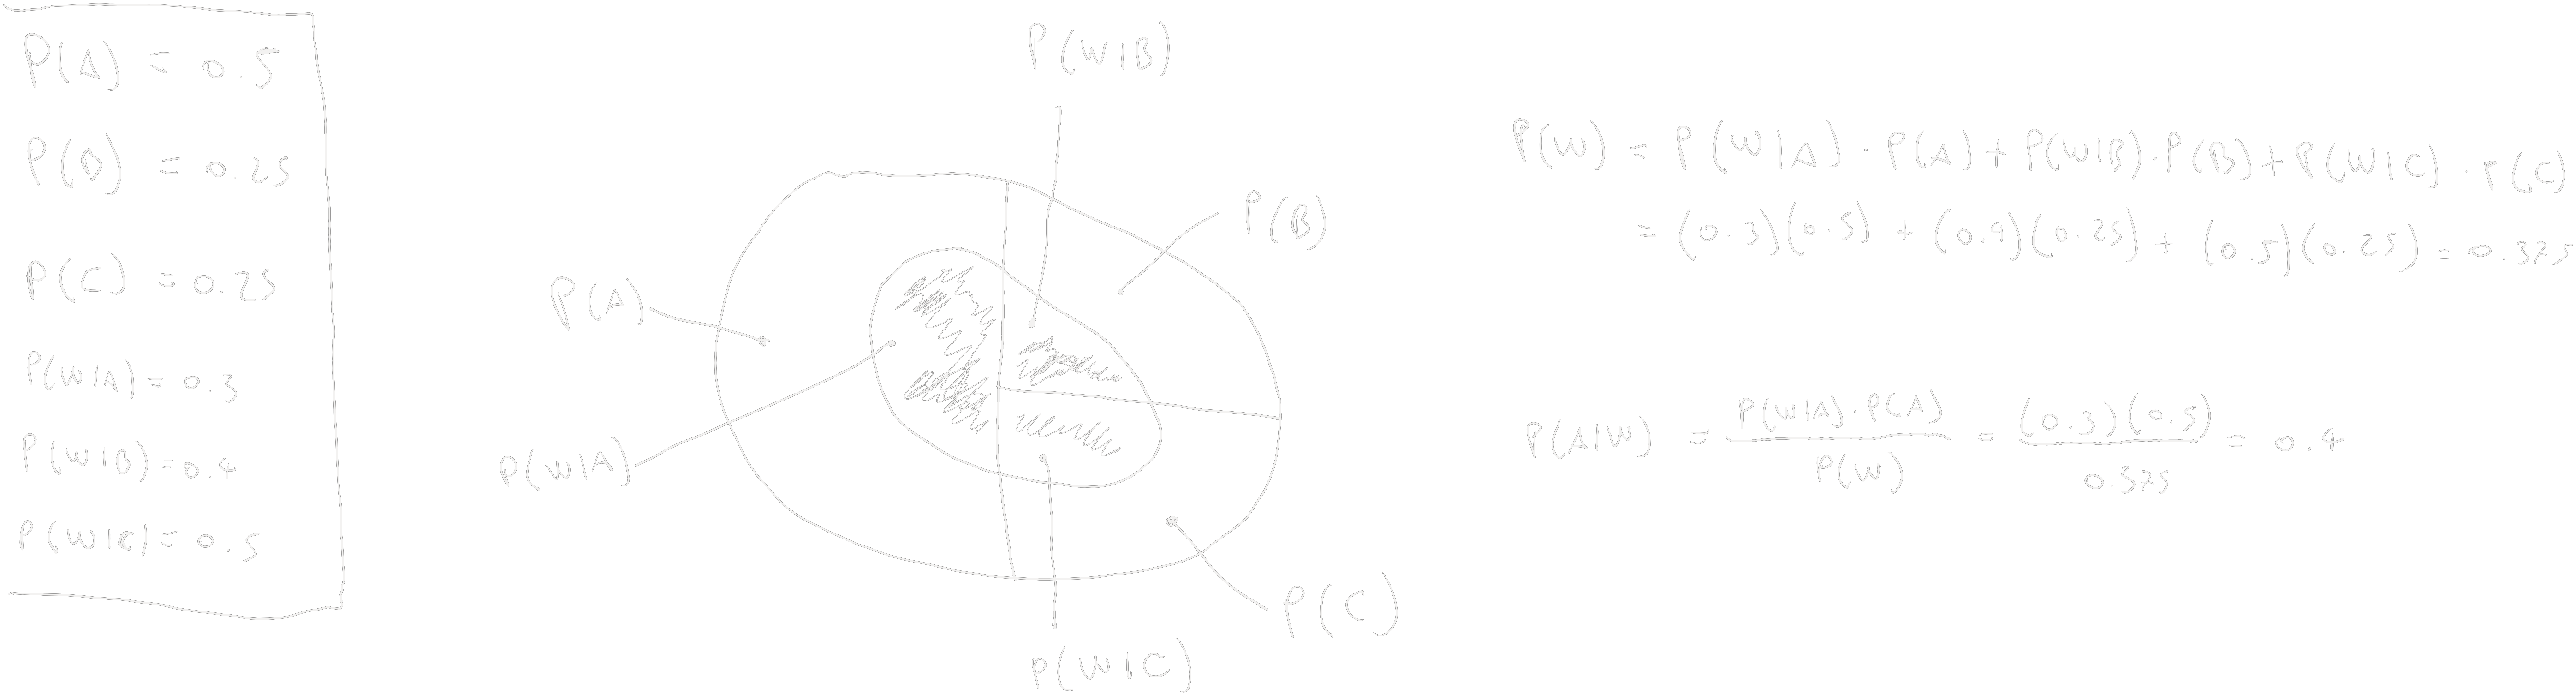 P(A) = 0.5
P(B) = 0.25
P(C) = 0.25
P(W|A) = 0.3
P(W|B) = 0.4
P(W|C) = 0.5
P(W|B)
P(B)
P(A)
P(W|A)
P(C)
P(W|C)
P(W) = P(W|A) · P(A) + P(W|B) · P(B) + P(W|C) · P(C)
= (0.3)(0.5) + (0.4)(0.25) + (0.5)(0.25) = 0.375
P(A|W) = P(W|A) · P(A) / P(W) = (0.3)(0.5) / 0.375 = 0.4